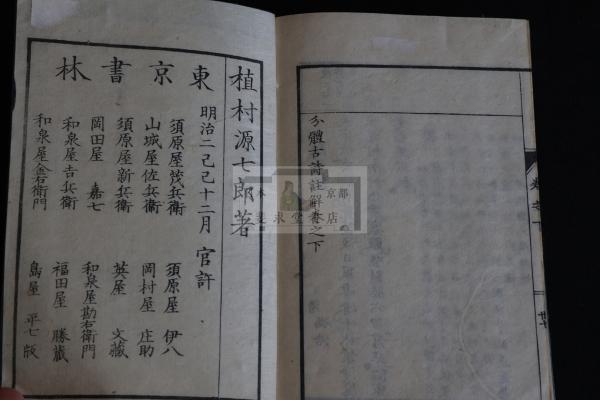 分體古詩註解卷之下
植村源七郎著
明治二己巳十二月 官許
東京書林
須原屋茂兵衛
山城屋佐兵衛
須原屋新兵衛
岡田屋 嘉七
和泉屋吉兵衛
和泉屋金右衛門
須原屋 伊八
岡村屋 庄助
英屋 文藏
和泉屋勘右衛門
福田屋 勝藏
島屋 平七版